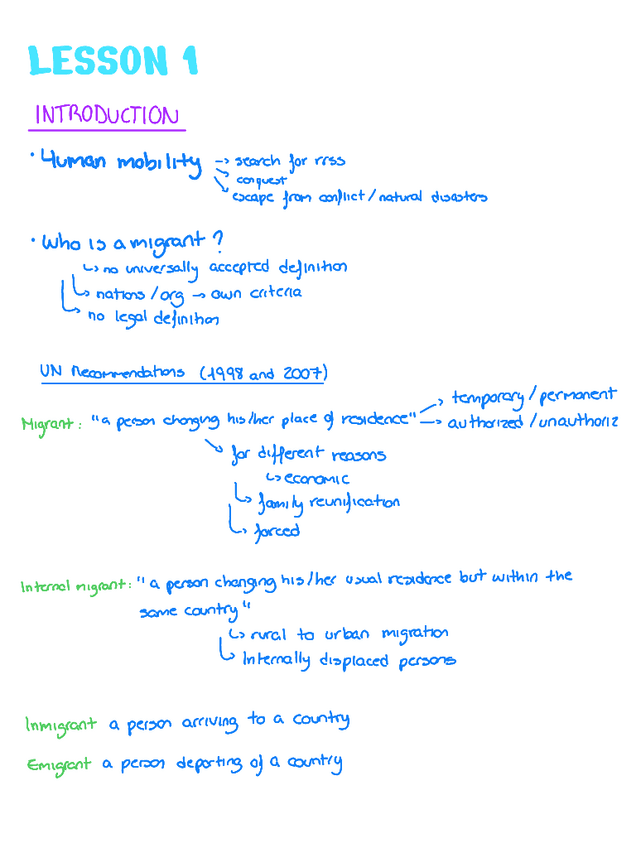 LESSON 1
INTRODUCTION
· Human mobility -> search for rrss
-> conquest
-> escape from conflict / natural disasters
· Who is a migrant?
-> no universally accepted definition
-> nations / org -> own criteria
-> no legal definition
UN Recommendations (1998 and 2007)
Migrant: "a person changing his/her place of residence" -> temporary / permanent
-> authorized / unauthoriz
-> for different reasons
-> economic
-> family reunification
-> forced
Internal migrant: "a person changing his/her usual residence but within the
same country"
-> rural to urban migration
-> Internally displaced persons
Inmigrant a person arriving to a country
Emigrant a person departing of a country